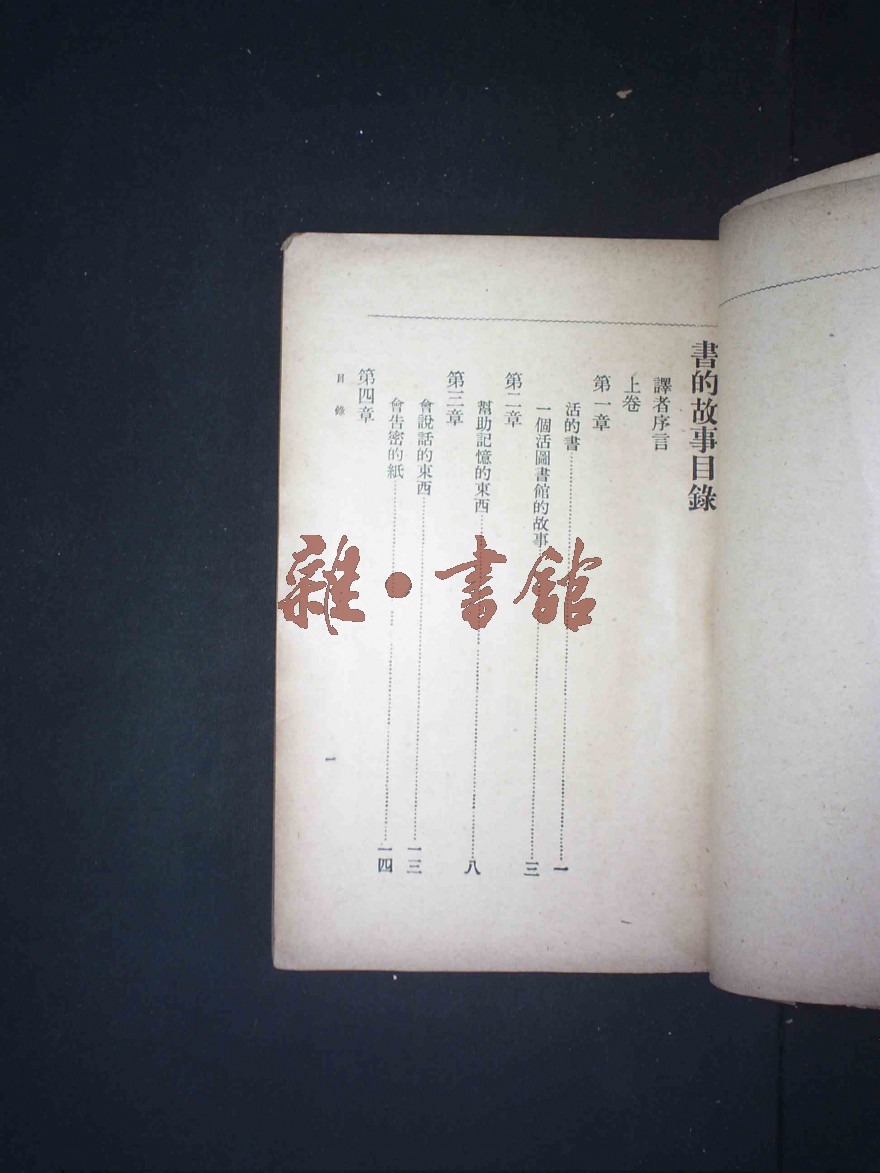 書的故事目錄
譯者序言
上卷
第一章
活的書⋯⋯一
一個活圖書館的故事⋯⋯三
第二章
幫助記憶的東西⋯⋯八
第三章
會說話的東西⋯⋯一三
會告密的紙⋯⋯一四
第四章
目錄
一
雜·書館